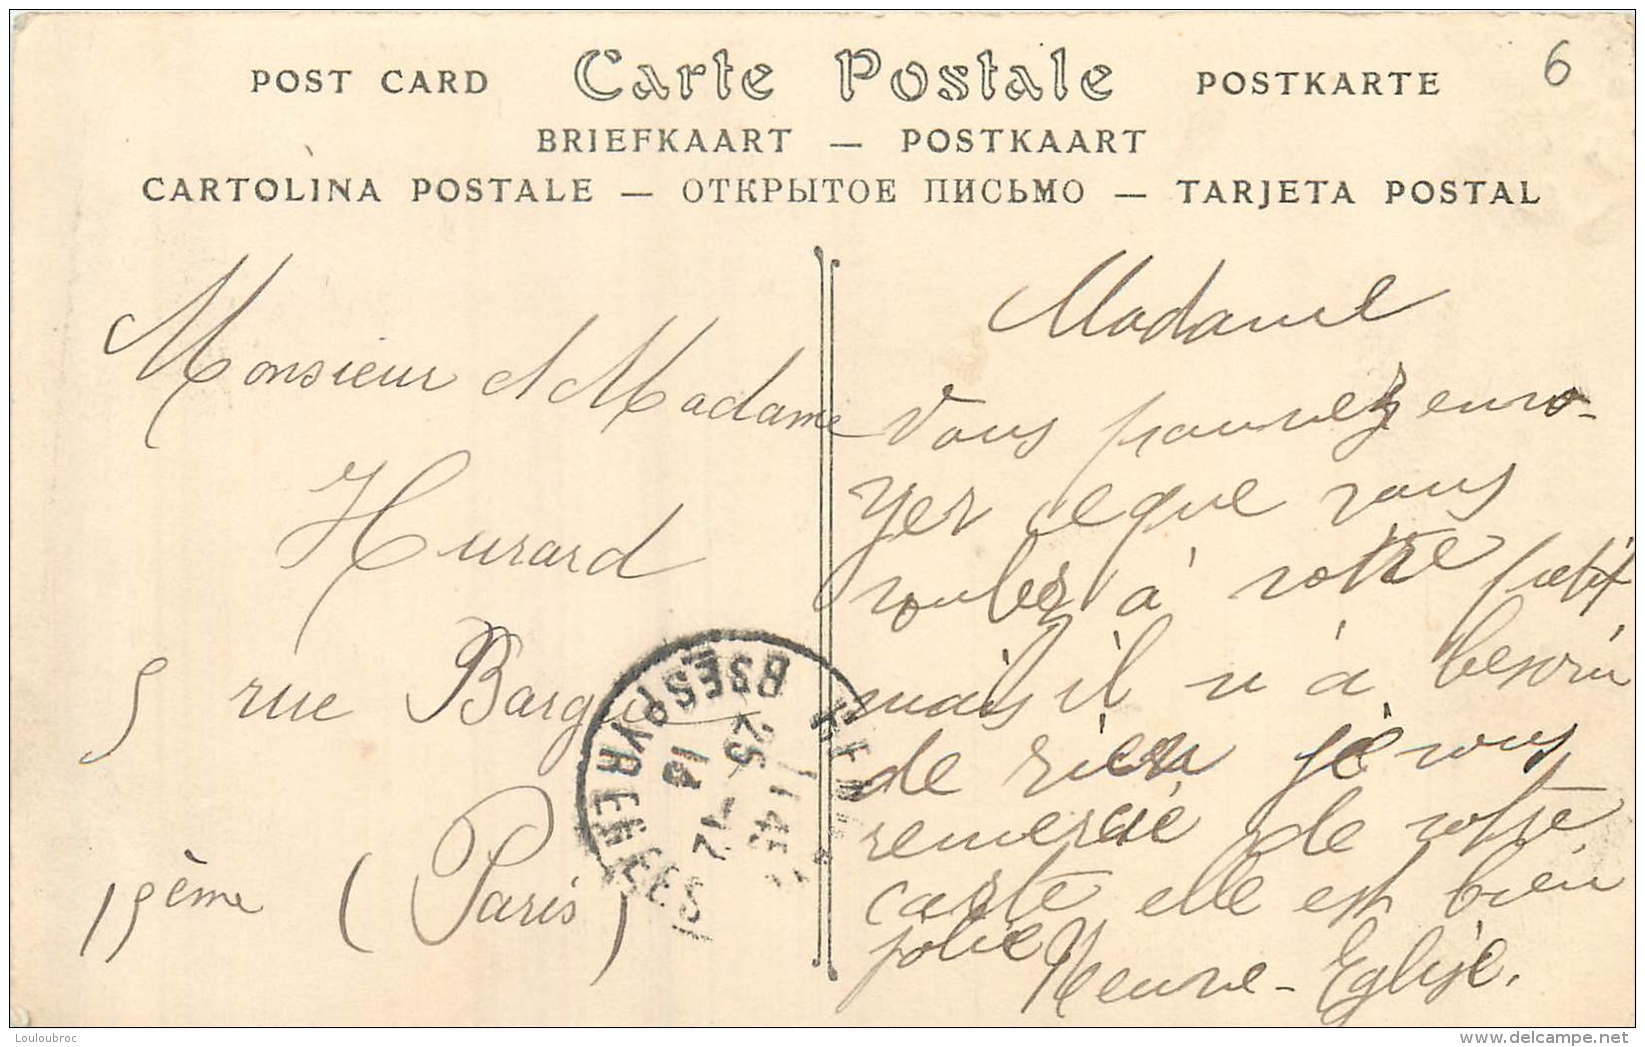 6
POST CARD Carte Postale POSTKARTE
BRIEFKAART — POSTKAART
CARTOLINA POSTALE — ОТКРЫТОЕ ПИСЬМО — TARJETA POSTAL
Monsieur et Madame
Hurard
5 rue Barg
15ème (Paris)
BSES PYRENEES
25 -12
11 45
18
Madame
Vous pouvez envo-
yer ce que vous
voulez à votre petit
mais il n'a besoin
de rien je vous
remercie de votre
carte elle est bien
jolie Neuve-Eglise.
Louloubroc
www.delcampe.net